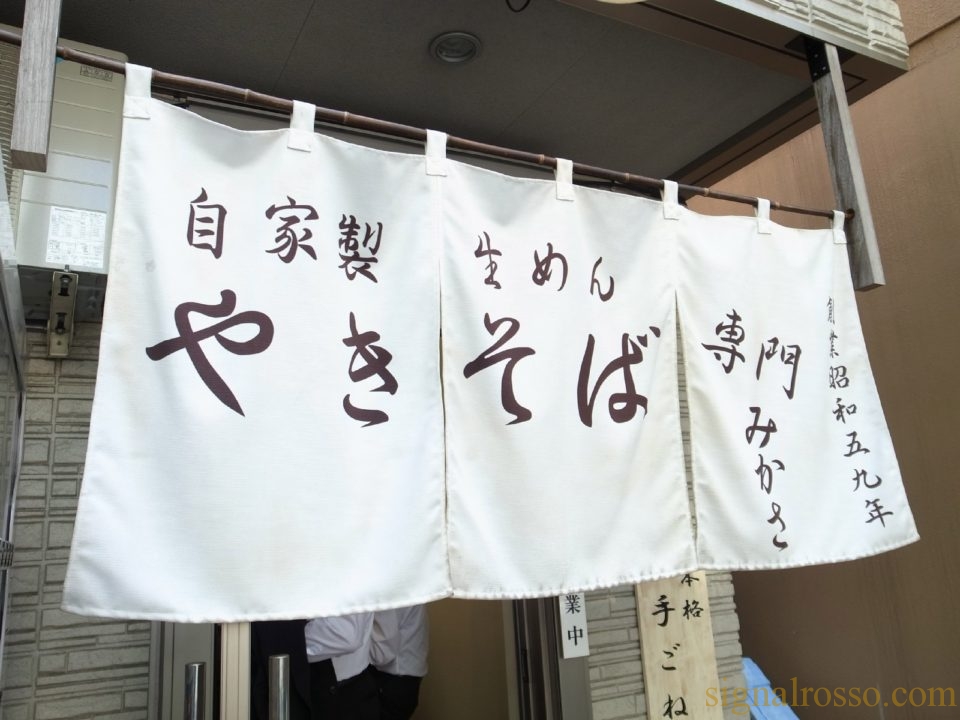 自家製 生めん
やきそば
専門
みかさ
創業昭和五九年
業中
本格
手ごね
signalrosso.com